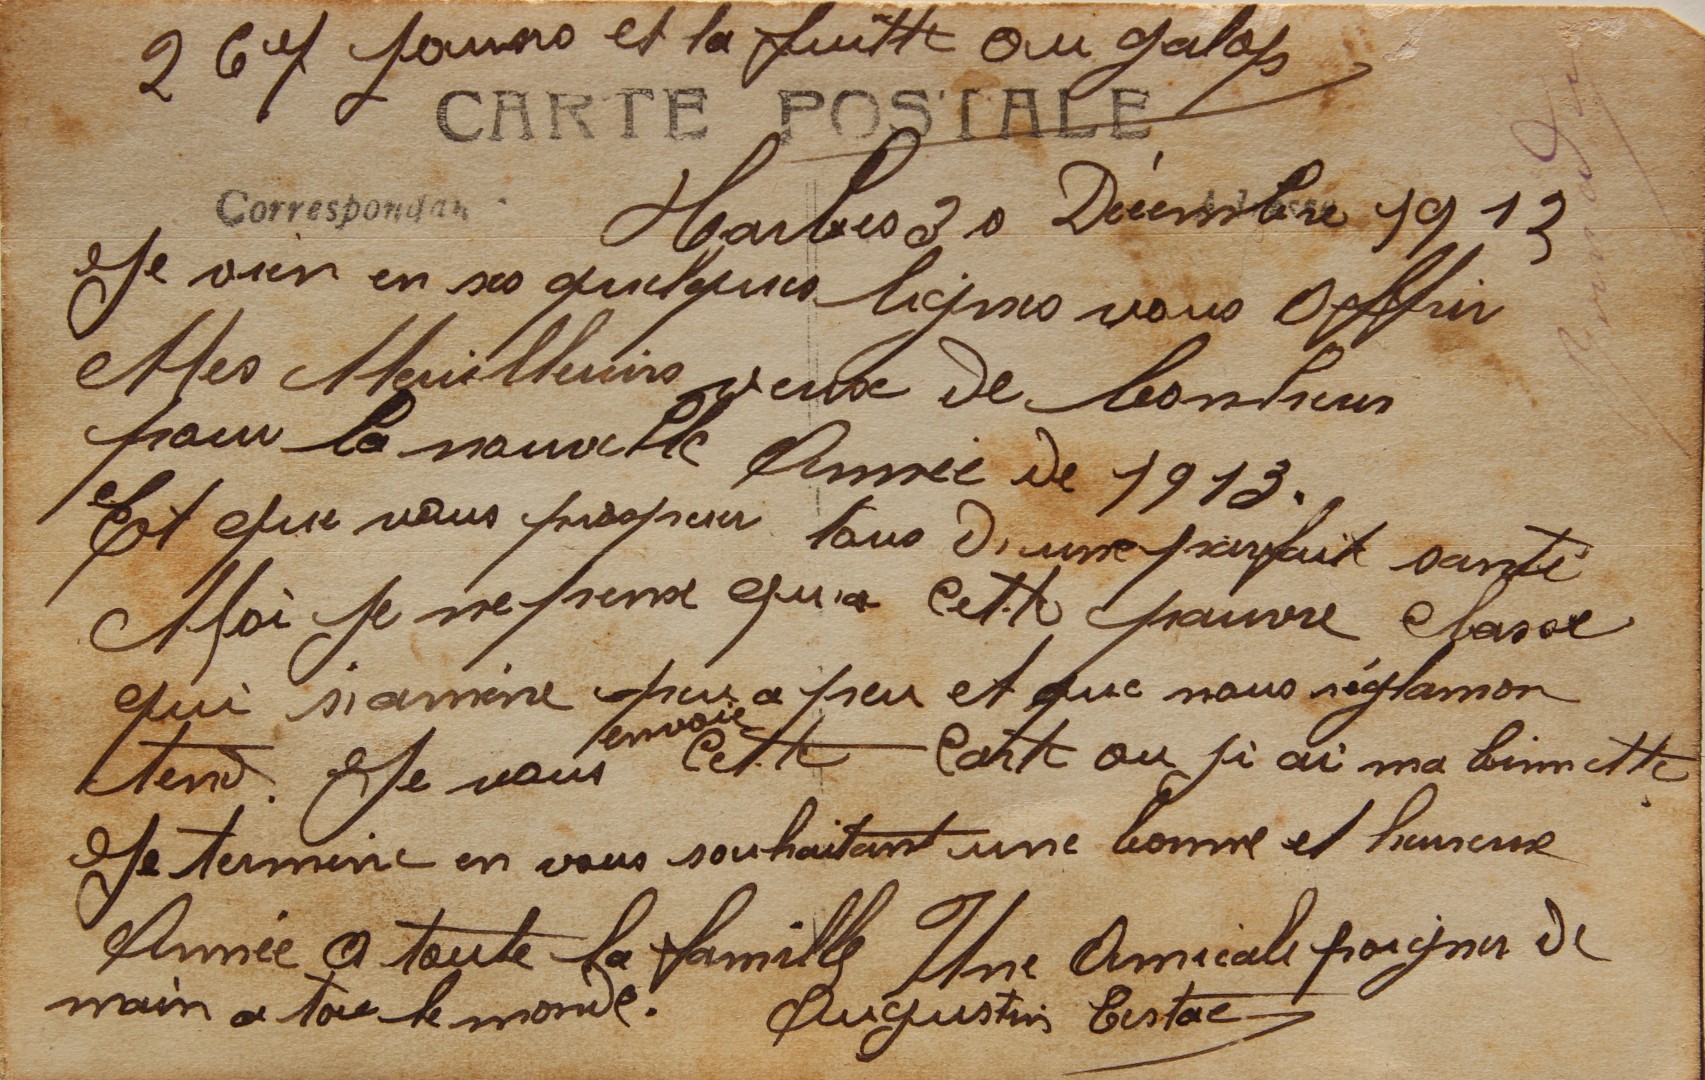 267 jours et la fuitte au galop
CARTE POSTALE
Correspondan
Tarbes 30 Décembre 1913
Je vien en ses quelques lignes vous offrir
Mes Meuilleurs veux de bonheur
pour la nouvelle Année de 1913.
Et que vous prosperer tous d'une parfaite santé
Moi je ne pense qu'a cette pauvre classe
qui s'amène peu a peu et que nous réglamon
tend. Je vous envoie cette Carte ou ji ai ma binnette
Je termine en vous souhaitant une bonne et heureuse
Année a toute la famille Une Amicale poigner de
main a tou le monde. Augustin